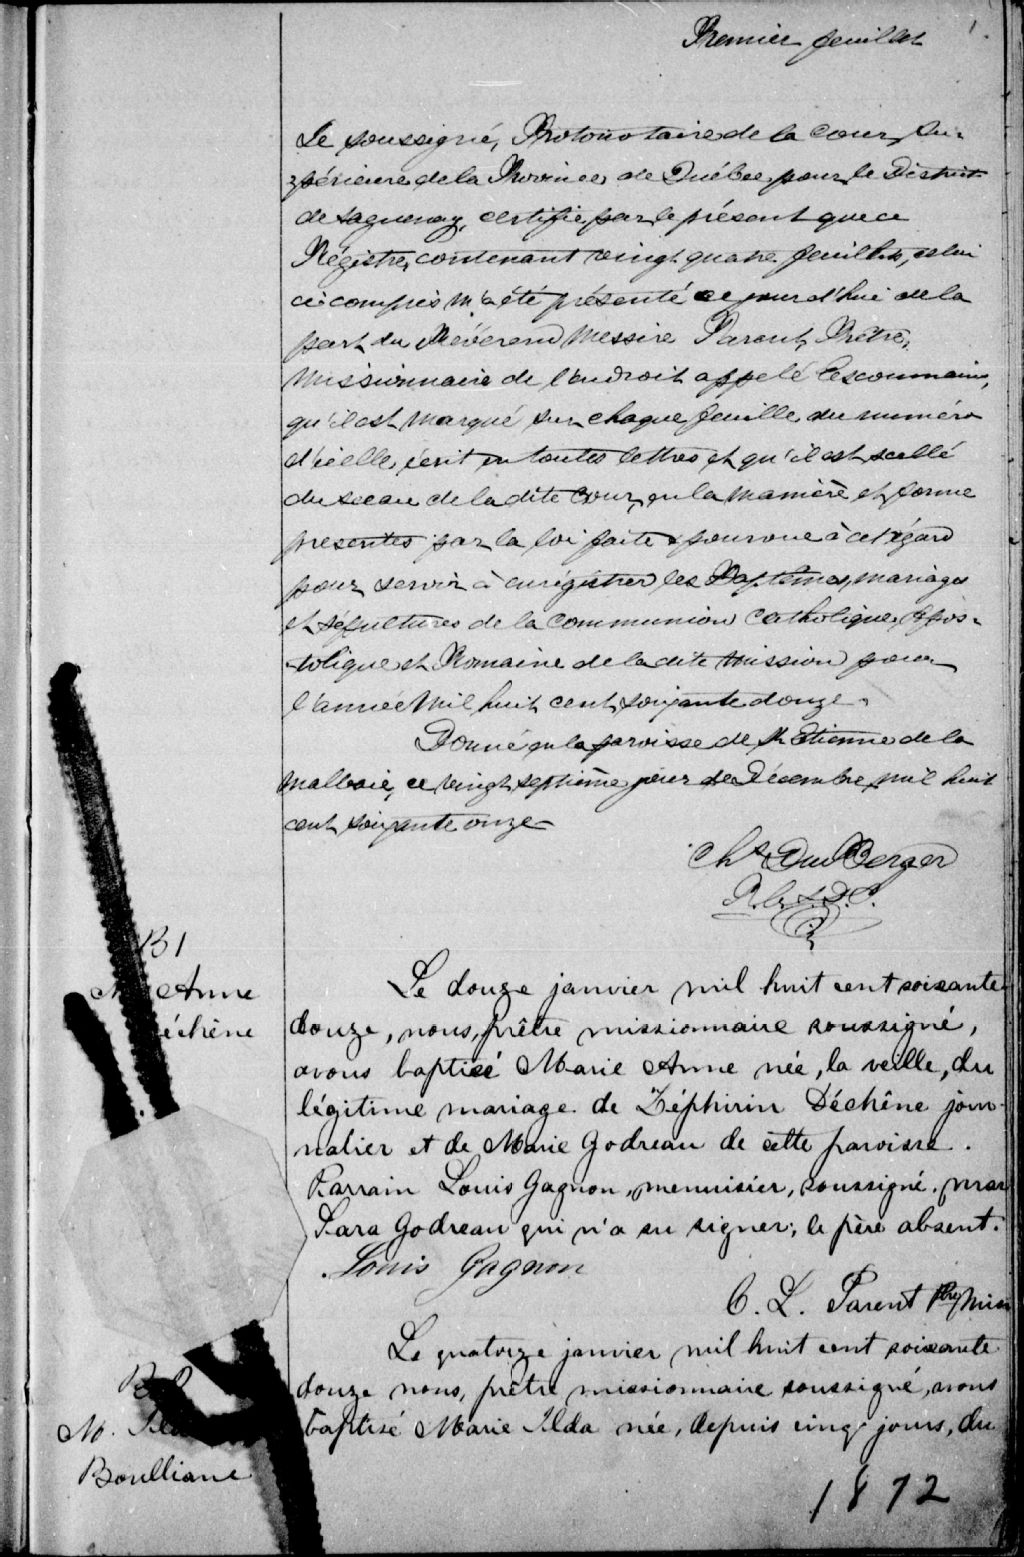 Premier feuillet 1.
Le soussigné, Protonotaire de la Cour Su-
périeure de la Province de Québec pour le District
de Saguenay, certifie par le présent que ce
Régistre, contenant vingt quatre feuillets, celui
ci compris m'a été présenté ce jourd'hui de la
part du Révérend Messire Parent, Prêtre,
Missionnaire de l'endroit appelé Escoumains,
qu'il est marqué sur chaque feuille du numéro
d'icelle, écrit en toutes lettres et qu'il est scellé
du sceau de la dite Cour, en la manière et forme
prescrites par la loi faite & pourvue à cet égard
pour servir à enrégistrer les Baptêmes, mariages
et sépultures de la communion Catholique, Apos-
tolique et Romaine de la dite Mission pour
l'année Mil huit cent soixante douze.
Donné en la paroisse de St Etienne de la
Malbaie, ce vingt septième jour de Décembre mil huit
cent soixante onze
Chs Du Berger
P. C. S. D. S.
B 1
M. Anne
échêne
Le douze janvier mil huit cent soixante
douze, nous, prêtre missionnaire soussigné,
avons baptisé Marie Anne née, la veille, du
légitime mariage de Zéphirin Déchêne jour-
nalier et de Marie Godreau de cette paroisse.
Parrain Louis Gagnon, menuisier, soussigné, mar
Sara Godreau qui n'a su signer; le père absent.
Louis Gagnon
C. L. Parent Ptre Miss
B
M. Ilda
Boulliane
Le quatorze janvier mil huit cent soixante
douze nous, prêtre missionnaire soussigné, avons
baptisé Marie Ilda née, depuis cinq jours, du
1872